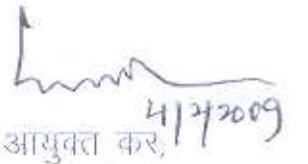 4/2/2009
आयुक्त कर,